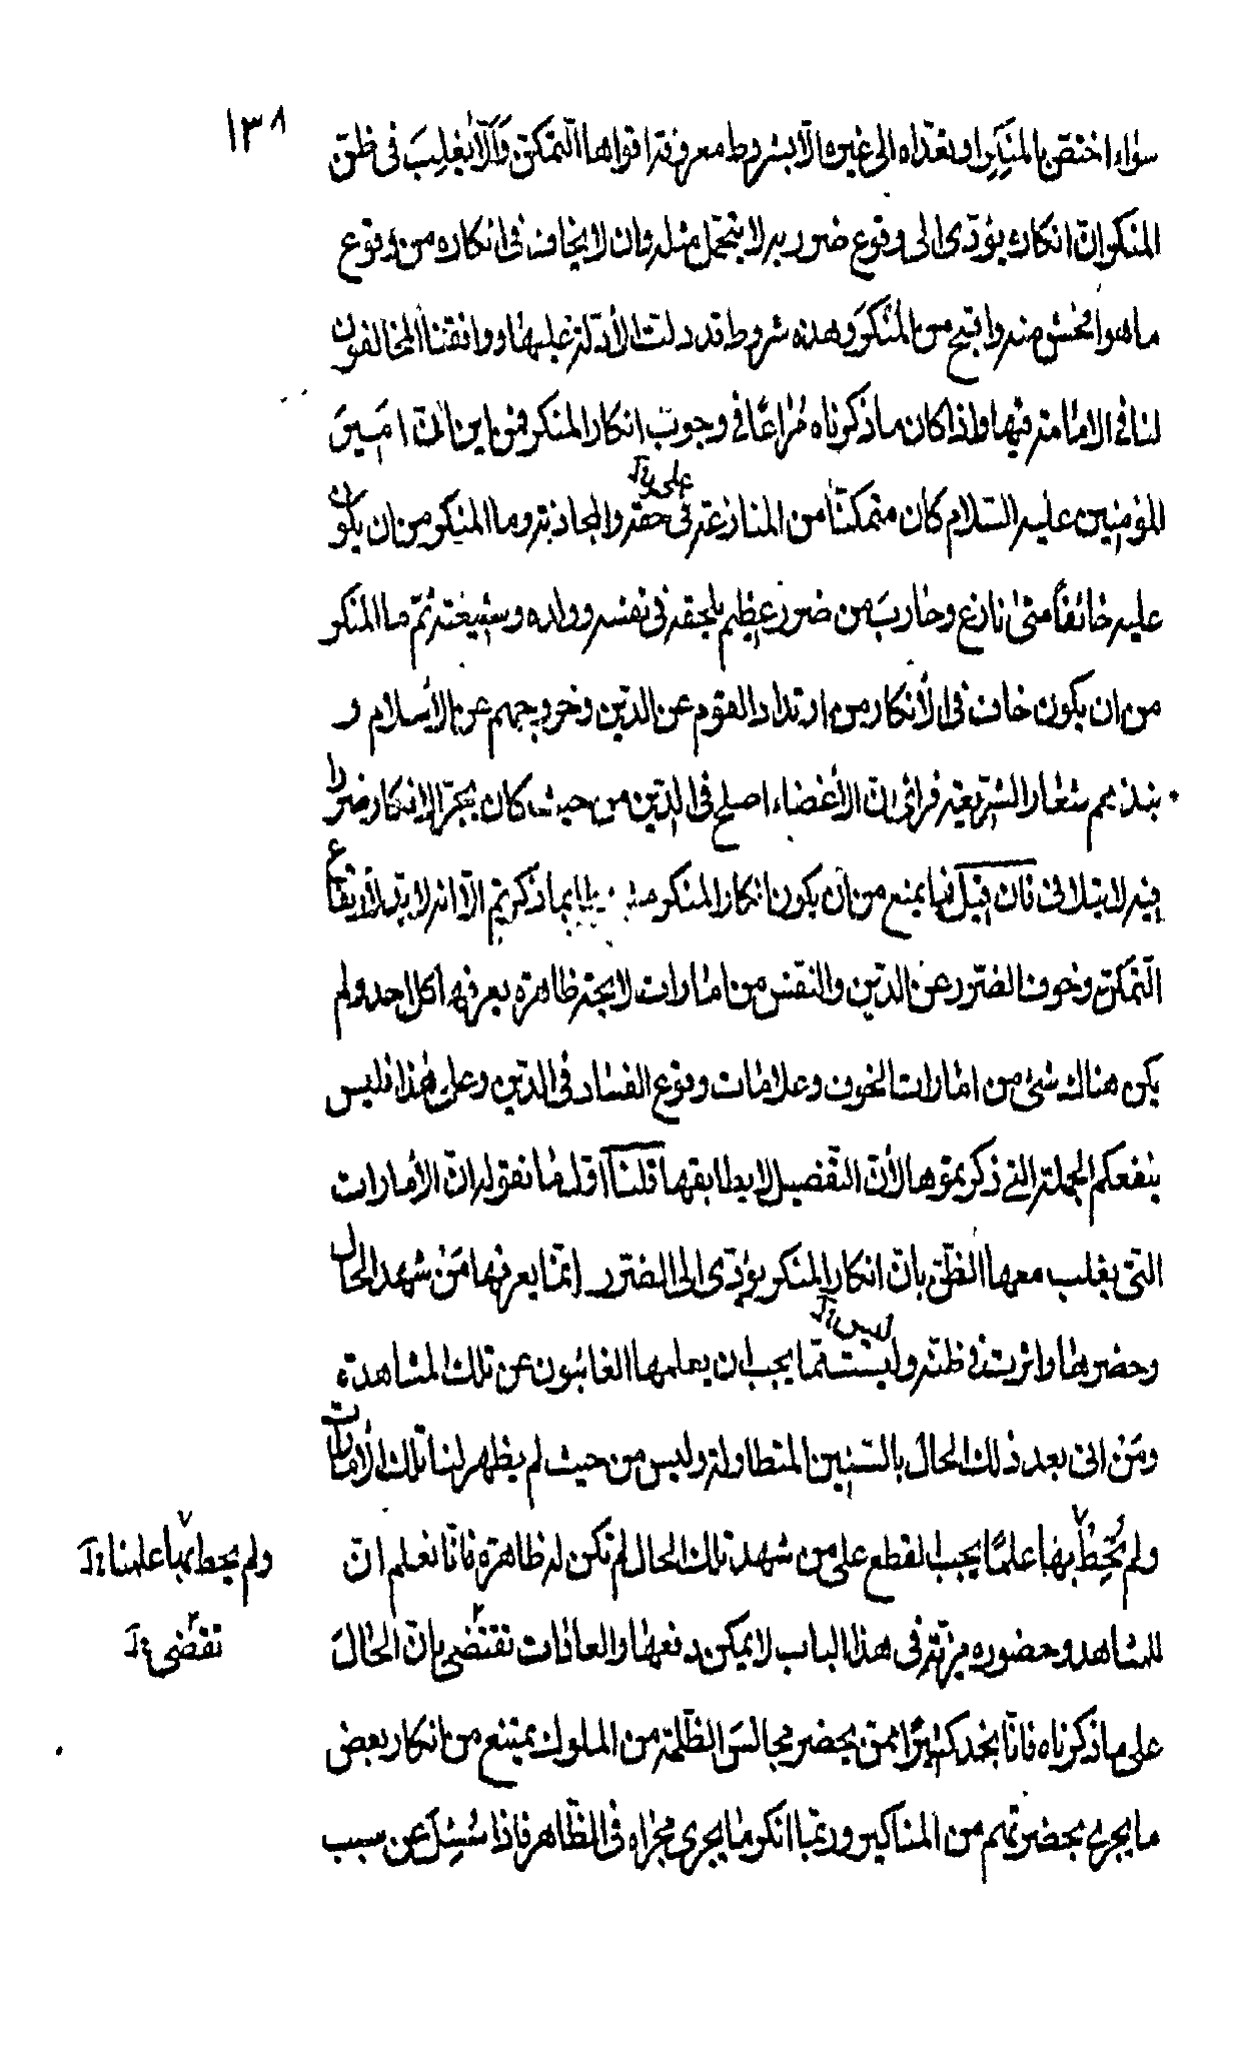 ١٣٨
سواء اختص بالمنكر او تعداه الى غيره الا بشروط معروفة اقواها التمكن وَاَلّا يغلِبَ فى ظن
المنكر ان انكاره يؤدى الى وقوع ضرر به لا يتحمل مثله وان لا يخاف فى انكاره من وقوع
ما هو افحش منه واقبح من المنكر وهذه شروط قد دلت الادلة عليها ووافقنا المخالفون
لنا فى الامامة فيها واذا كان ما ذكرناه مُراعًا فى وجوب انكار المنكر فمن اين ان امير
المؤمنين عليه السلام كان متمكنًا من المنازعة فى حقه والمجاذبة وما المنكر من ان يكون
على خ‍ل
عليه خائفًا متى نازع وحاربَ من ضرر عظيم يلحقه فى نفسه وولده وشيعته ثم ما المنكر
من ان يكون خاف فى الانكار من ارتداد القوم عن الدين وخروجهم عن الاسلام و
نبذهم شعار الشريعة فرأى ان الأغضاء اصلح فى الدين من حيث كان يجر الانكار ضررا
فيه لا يتلافى فان قيل فما يمنع من ان يكون انكار المنكر بما ذكرتم الا انه لا بد لارتفاع
التمكن وخوف الضرر عن الدين والنفس من امارات لايحة ظاهرة يعرفها كل احد ولم
يكن هناك شئ من امارات الخوف وعلامات وقوع الفساد فى الدين وعلى هذا فليس
ينفعكم الجملة التى ذكرتموها لأن التفصيل لا يطابقها قلنا اول ما نقوله ان الأمارات
التى يغلب معها الظن بان انكار المنكر يؤدى الى الضرر انما يعرفها مَنْ شهد الحال
وحضرها واثرت فى ظنه وليست مما يجب ان يعلمها الغائبون عن تلك المشاهدة
ليس خ‍ل
ومَنْ اتى بعد ذلك الحال بالسنين المتطاولة وليس من حيث لم يظهر لنا تلك الأمارات
ولم يُحِطْ بها علمًا يجب القطع على من شهد تلك الحال لم تكن له ظاهرة فانّا نعلم ان
ولم يحط بها علمنا خ‍ل
للمشاهد وحضوره مزيّة فى هذا الباب لا يمكن دفعها والعادات تقتضى بان الحالَ
تقضى خ‍ل
على ما ذكرناه فانّا نجد كثيرًا ممن يحضر مجالسَ الظلمة من الملوك يمتنع من انكار بعض
ما يجرى بحضرتهم من المناكير وربما انكر ما يجرى مجراه فى الظاهر فاذا سُئِلَ عن سبب